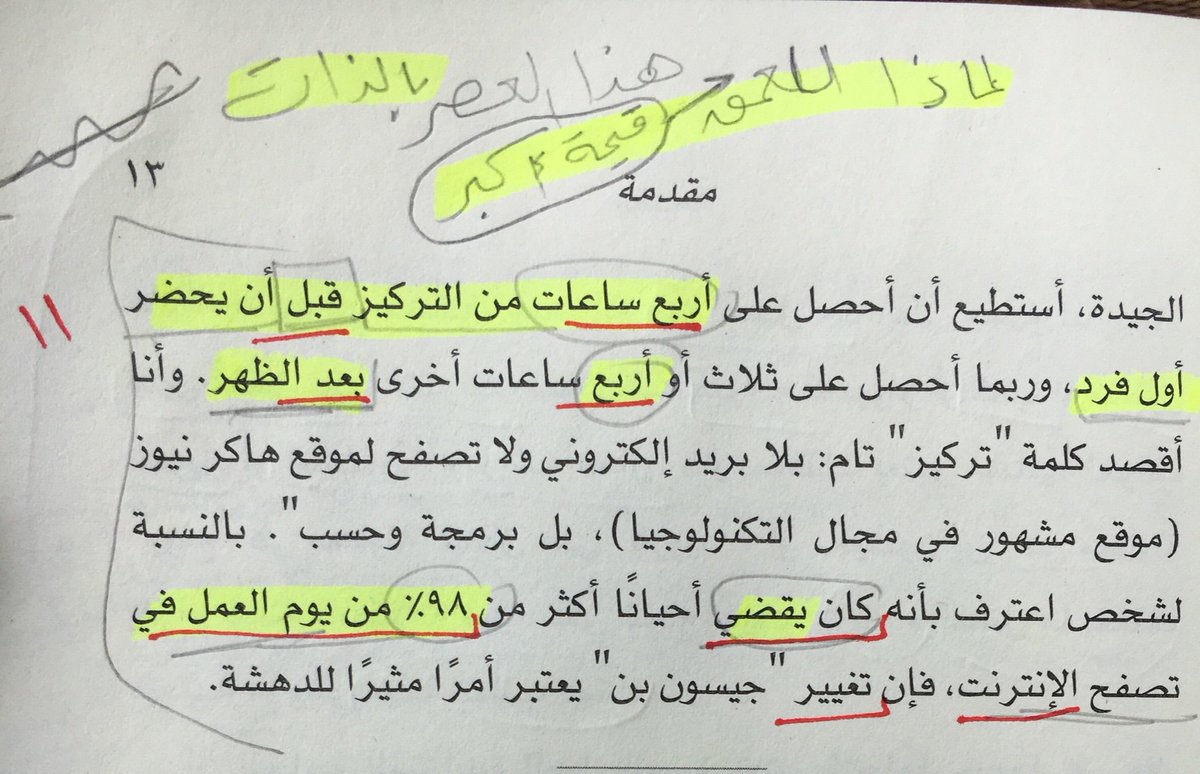 لماذا للتعمق هذا العصر بالذات
قيمة أكبر
مقدمة
١٣
الجيدة، أستطيع أن أحصل على أربع ساعات من التركيز قبل أن يحضر
١١
أول فرد، وربما أحصل على ثلاث أو أربع ساعات أخرى بعد الظهر. وأنا
أقصد كلمة "تركيز" تام: بلا بريد إلكتروني ولا تصفح لموقع هاكر نيوز
(موقع مشهور في مجال التكنولوجيا)، بل برمجة وحسب". بالنسبة
لشخص اعترف بأنه كان يقضي أحيانًا أكثر من ٩٨٪ من يوم العمل في
تصفح الإنترنت، فإن تغيير "جيسون بن" يعتبر أمرًا مثيرًا للدهشة.